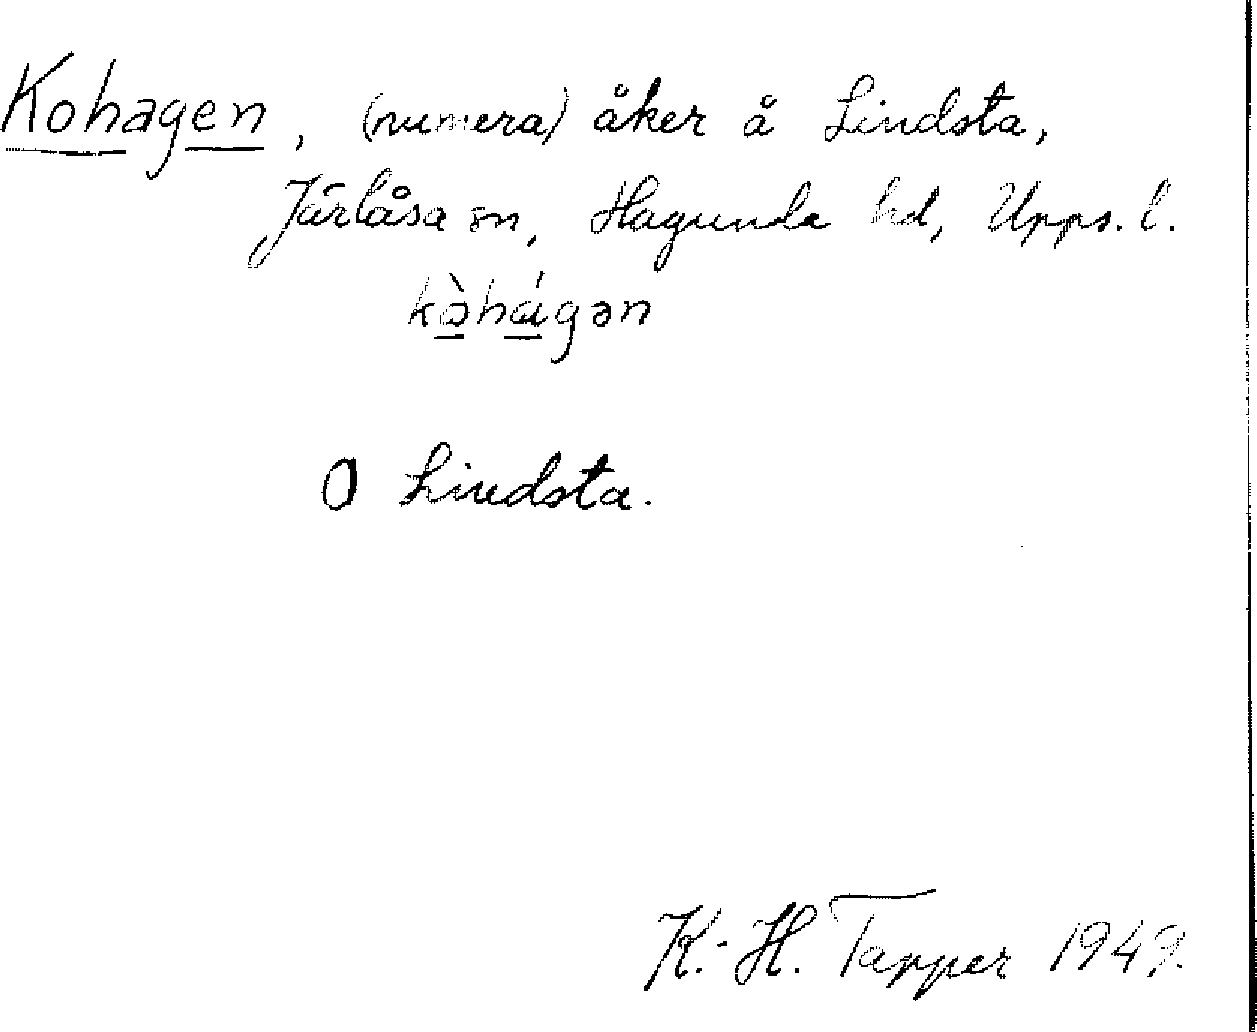 Kohagen, (numera) åker å Lindsta,
Järlåsa sn, Hagunda hd, Upps. l.
kò̱há̱gən
O Lindsta.
K.-H. Tapper 1949.